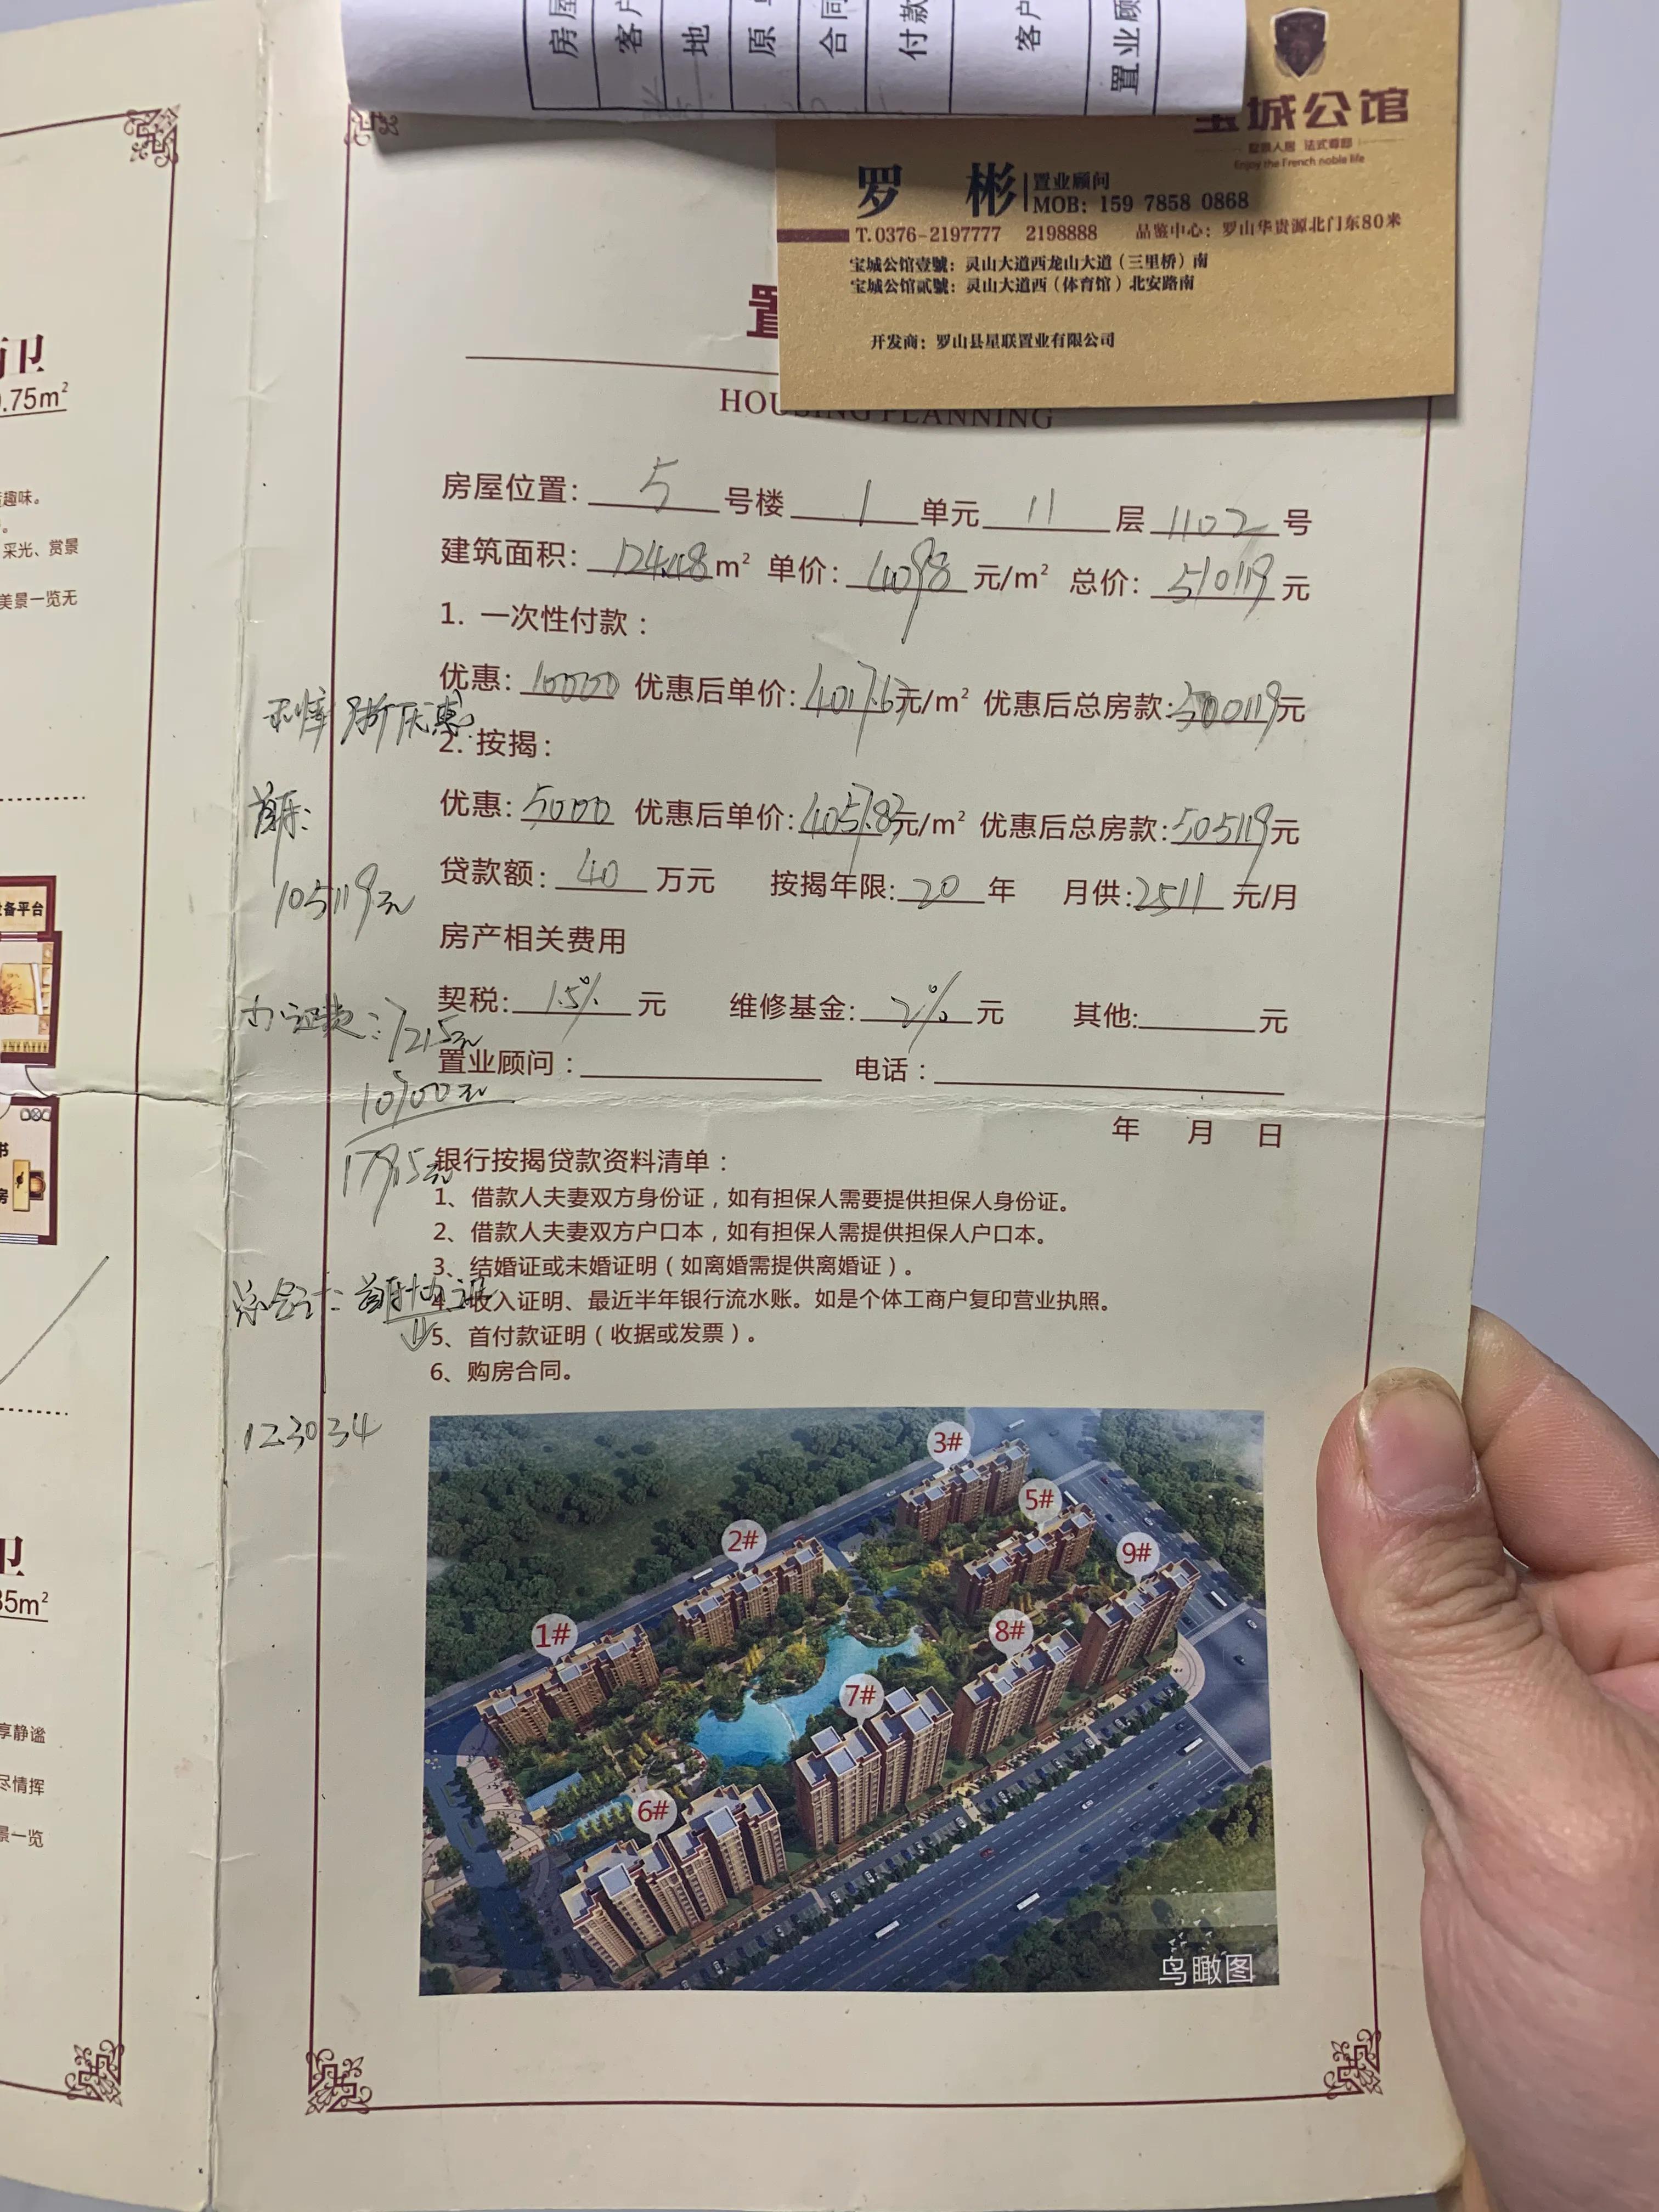 房屋
客户
地
原
合同
付款
客户
置业顾
宝城公馆
墅景人居 法式尊邸
Enjoy the French noble life
罗 彬 置业顾问
MOB: 159 7858 0868
T. 0376-2197777 2198888 品鉴中心：罗山华贵源北门东80米
宝城公馆壹號：灵山大道西龙山大道（三里桥）南
宝城公馆贰號：灵山大道西（体育馆）北安路南
开发商：罗山县星联置业有限公司
置
HOUSING PLANNING
房屋位置：5号楼 1单元 11层 1102号
建筑面积：124.48m² 单价：4098元/m² 总价：510119元
1. 一次性付款：
优惠：10000 优惠后单价：4017.67元/m² 优惠后总房款：500119元
利率 9折优惠
2. 按揭：
优惠：5000 优惠后单价：4057.83元/m² 优惠后总房款：505119元
首付：
105119元
贷款额：40万元 按揭年限：20年 月供：2511元/月
房产相关费用
契税：1.5%元 维修基金：2%元 其他：元
办证费：7215元
置业顾问： 电话：
10700元
年 月 日
17915元
银行按揭贷款资料清单：
1、借款人夫妻双方身份证，如有担保人需要提供担保人身份证。
2、借款人夫妻双方户口本，如有担保人需提供担保人户口本。
3、结婚证或未婚证明（如离婚需提供离婚证）。
总会计：首付+办证
4、收入证明、最近半年银行流水账。如是个体工商户复印营业执照。
5、首付款证明（收据或发票）。
6、购房合同。
123034
3#
5#
2#
9#
1#
8#
7#
6#
鸟瞰图
卫
.75m²
趣味。
采光、赏景
美景一览无
备平台
书
房
卫
35m²
享静谧
尽情挥
景一览